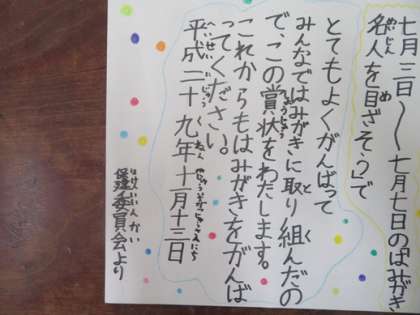 七月三日～七月七日の「はみがき
名人を目ざそう」で
とてもよくがんばって
みんなではみがきに取り組んだの
で、この賞状をわたします。
これからもはみがきをがんば
ってください。
平成二十九年十一月十三日
保健委員会より